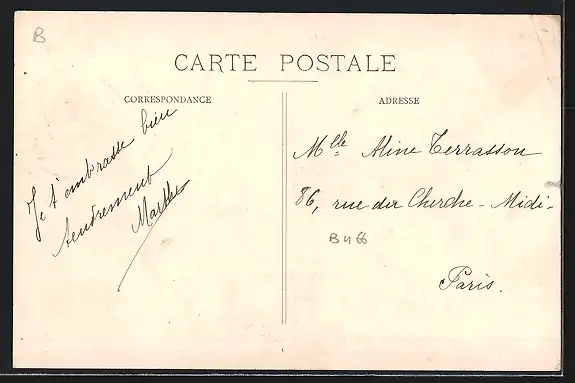 B
CARTE POSTALE
CORRESPONDANCE
Je t'embrasse bien
tendrement
Marthe
ADRESSE
Mlle Aline Terrasson
86, rue du Cherche-Midi-
B 4 66
Paris.